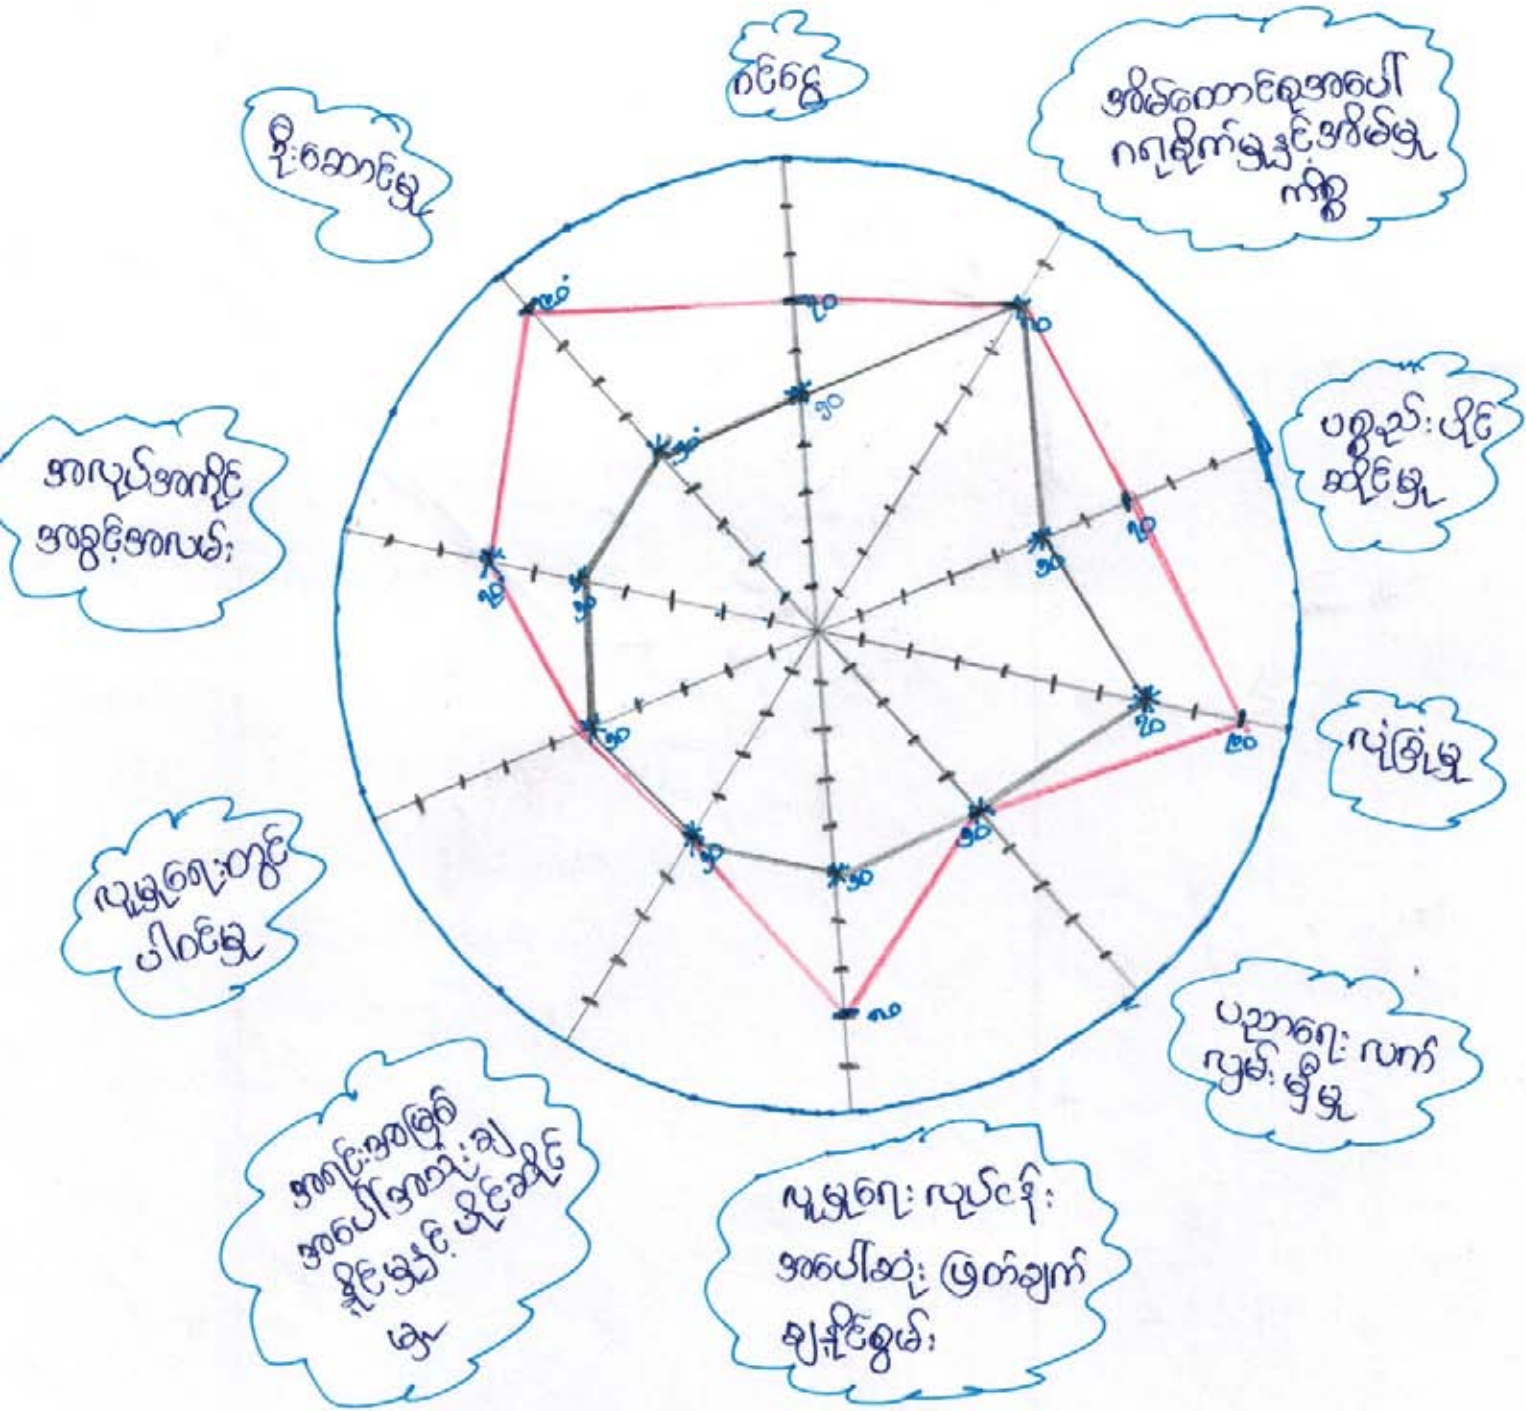 ဝင်ငွေ
အိမ်ထောင်စုအပေါ်
ဂရုစိုက်မှုနှင့်အိမ်မှု
ကိစ္စ
ပစ္စည်းပိုင်
ဆိုင်မှု
လုံခြုံမှု
ပညာရေး လက်
လှမ်းမှီမှု
လူမှုရေး လုပ်ငန်း
အပေါ်ဆုံးဖြတ်ချက်
ချနိုင်စွမ်း
အရင်းအမြစ်
အပေါ်အသုံးချ
နိုင်မှုနှင့် ပိုင်ဆိုင်
မှု
လူမှုရေးတွင်
ပါဝင်မှု
အလုပ်အကိုင်
အခွင့်အလမ်း
ဦးဆောင်မှု
၇၀
၅၀
၇၀
၅၀
၇၀
၉၀
၅၀
၅၀
၅၀
၅၀
၇၀
၅၀